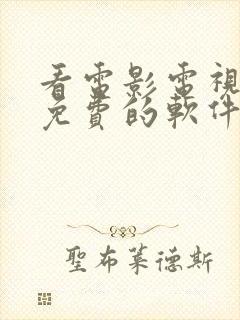 看電影電視
免費的軟件
聖布萊德斯